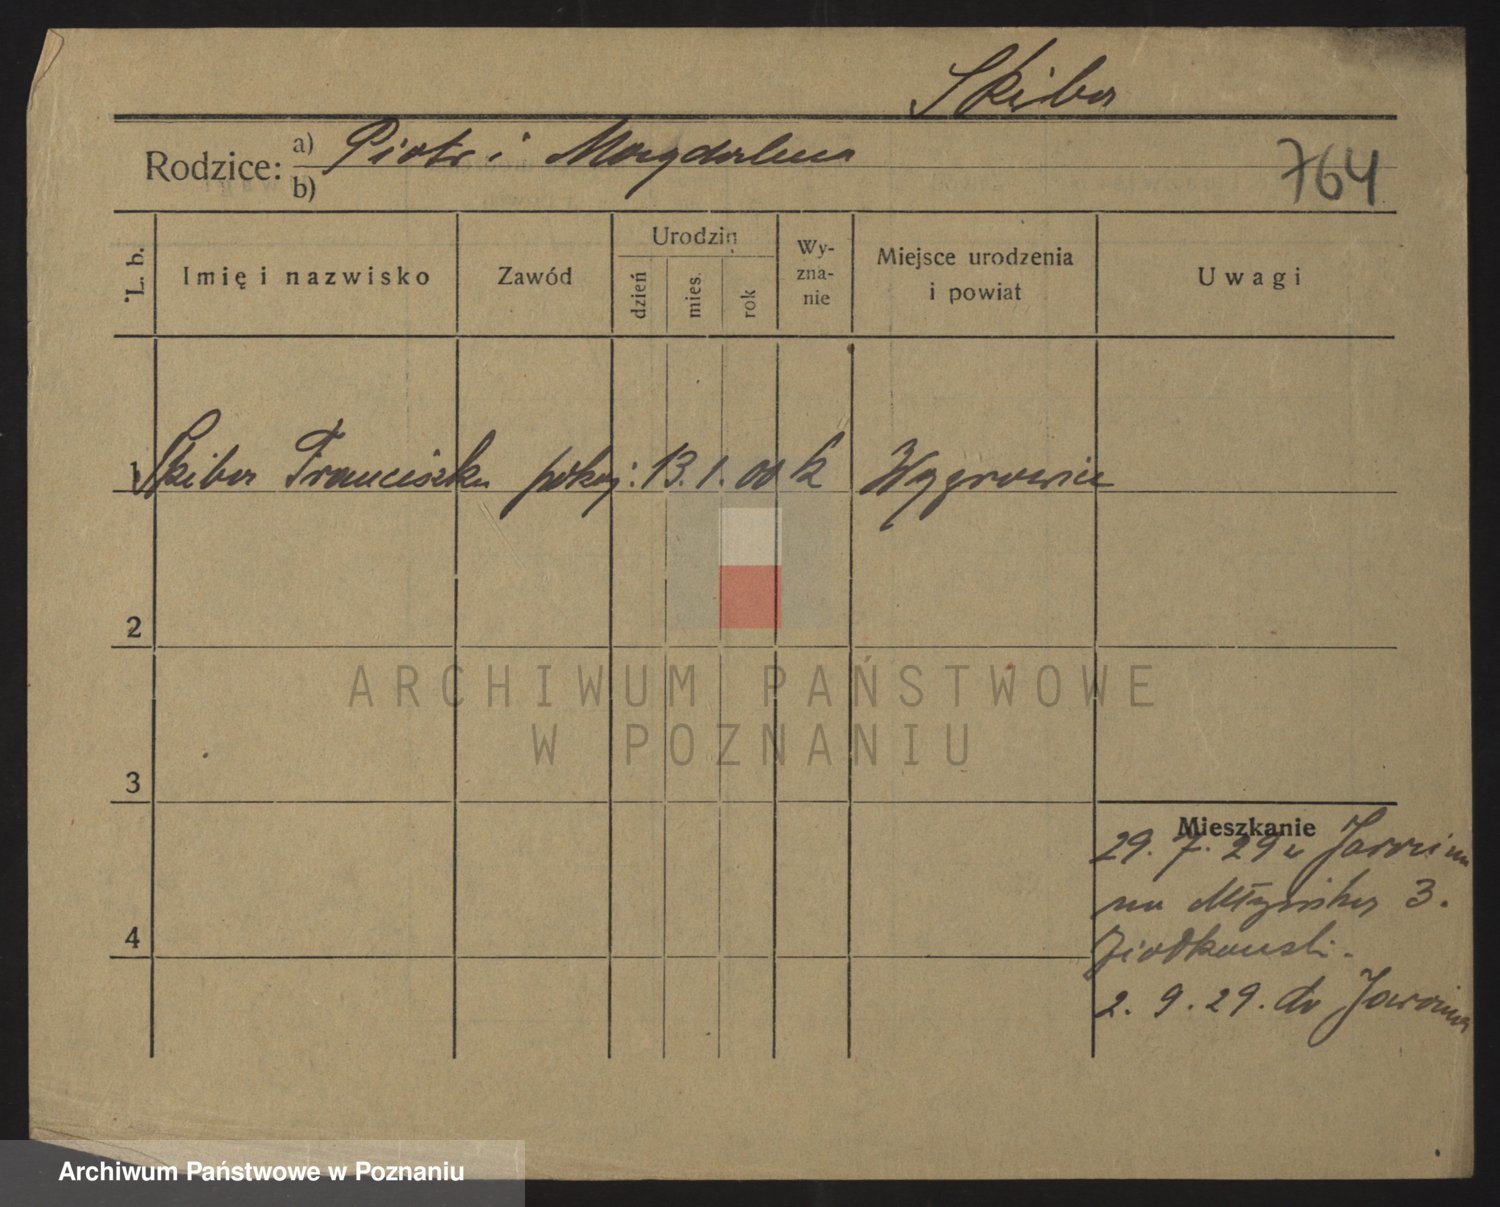 Skiba
Rodzice: a) Piotr i Magdalena
b)
764
L. b.
Imię i nazwisko
Zawód
Urodzin
dzień
mies.
rok
Wy-
zna-
nie
Miejsce urodzenia
i powiat
Uwagi
1 Skiba Franciszka pokoj: 13. 1. 00 k Wągrowiec
2
3
4
Mieszkanie
29. 7. 29 z
na Młyńska 3.
Ziołkowski.
2. 9. 29. do
ARCHIWUM PAŃSTWOWE
W POZNANIU
Archiwum Państwowe w Poznaniu